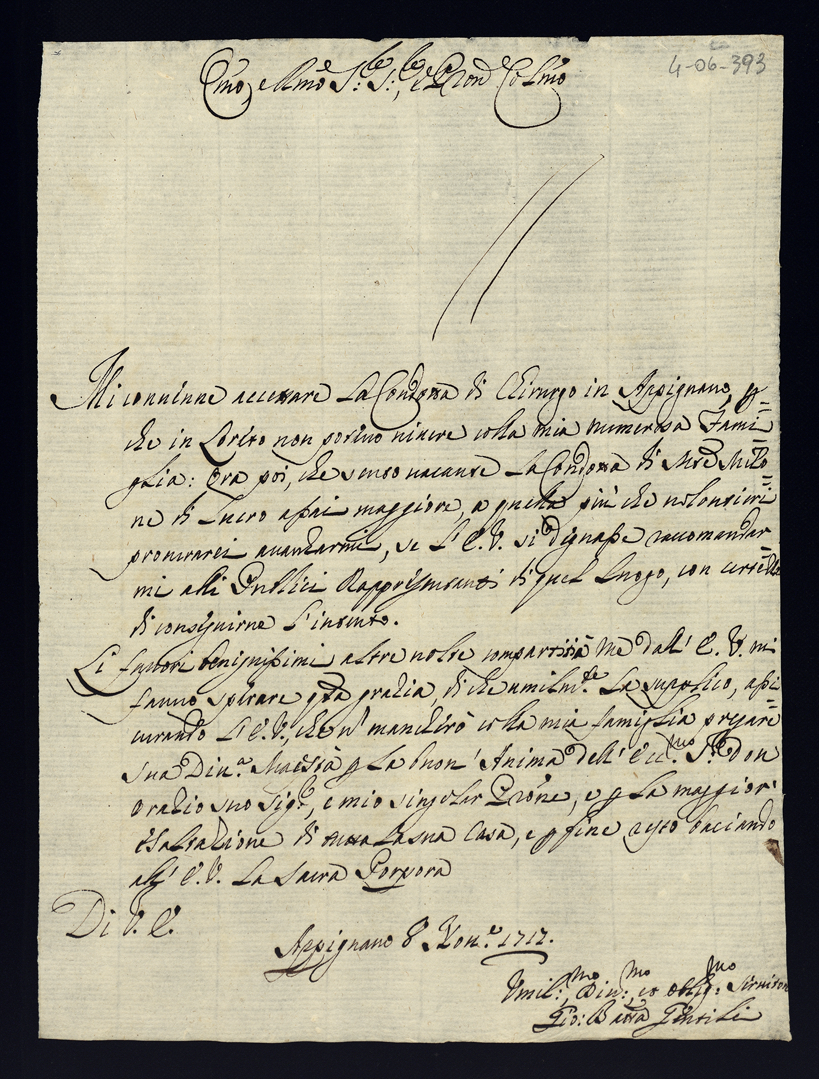 4-06-393
Emo, e Rmo S:re S:re, e Pron Colmo
Mi convenne accettare la Condotta di Chirurgo in Appignano, p=
che in Loreto non potevo vivere colla mia numerosa Fami=
glia: Ora poi, che sento vacante la Condotta di Mte Milo=
ne di lucro assai maggiore, a quella più che volontieri
procurarei avanzarmi, se l'E.V. si degnasse raccomandar=
mi alli Publici Rappresentanti di quel luogo, con certezza
di conseguirne l'intento.
Li favori benignissimi altre volte compartiti à me dall'E.V. mi
fanno sperare q.ta grazia, di che umilm.te la supplico, assi=
curando l'E.V., che n' mancherò colla mia famiglia pregare
Sua Divi.a Maestà p la buon'Anima dell'Ecc.mo S.r Don
Orazio suo Sig.r, e mio singolar Prone, e p la maggior'
esaltazione di tutta la sua Casa, e p fine resto baciando
all'E.V. la Sacra Porpora
Di V.E.
Appignano 8 Nov.e 1717.
Umil:mo, Div:mo, et oblig:mo Servitore
Gio: Batta Gentili